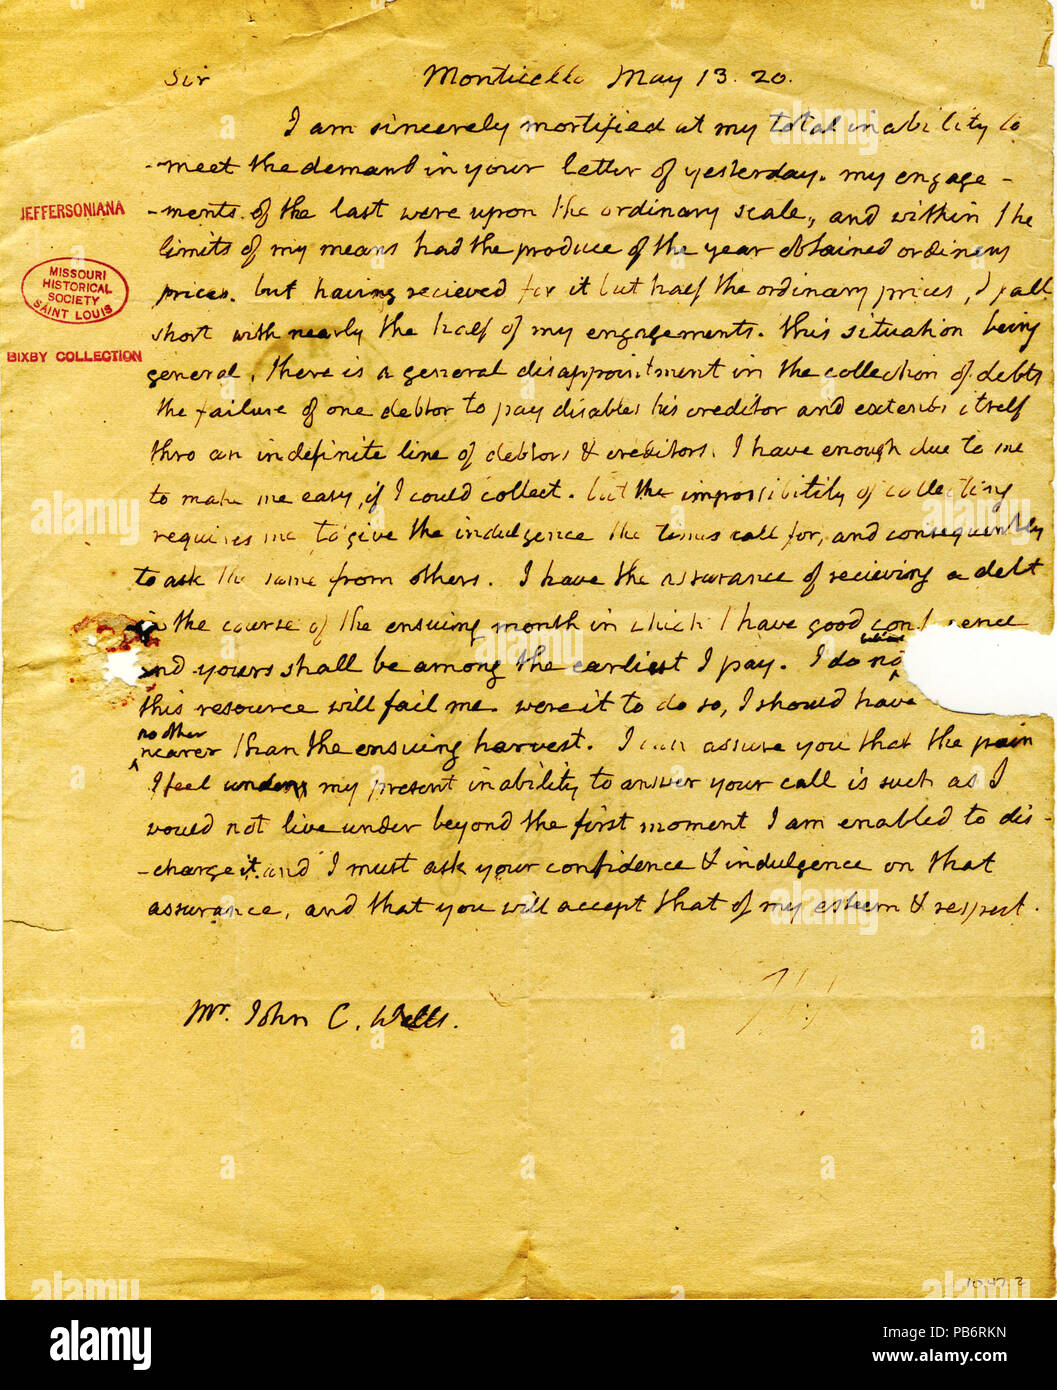 Sir Monticello May 13. 20.
I am sincerely mortified at my total inability to
-meet the demand in your letter of yesterday. my engage-
-ments. of the last were upon the ordinary scale, and within the
limits of my means had the produce of the year obtained ordinary
prices. but having recieved for it but half the ordinary prices, I fall
short with nearly the half of my engagements. this situation being
general, there is a general disappointment in the collection of debts
the failure of one debtor to pay disables his creditor and extends itself
thro an indefinite line of debtors & creditors. I have enough due to me
to make me easy, if I could collect. but the impossibility of collecting
requires me to give the indulgence the times call for, and consequently
to ask the same from others. I have the assurance of recieving a debt
in the course of the ensuing month in which I have good conf dence
and yours shall be among the earliest I pay. I do no
this resource will fail me. were it to do so, I should have
no other
nearer than the ensuing harvest. I can assure you that the pain
I feel under my present inability to answer your call is such as I
would not live under beyond the first moment I am enabled to dis-
-charge it. and I must ask your confidence & indulgence on that
assurance, and that you will accept that of my esteem & respect.
Th J
Mr. John C. Wells.
JEFFERSONIANA
MISSOURI
HISTORICAL
SOCIETY
SAINT LOUIS
BIXBY COLLECTION
10.47.2
alamy
a
alamy
Image ID: PB6RKN
www.alamy.com